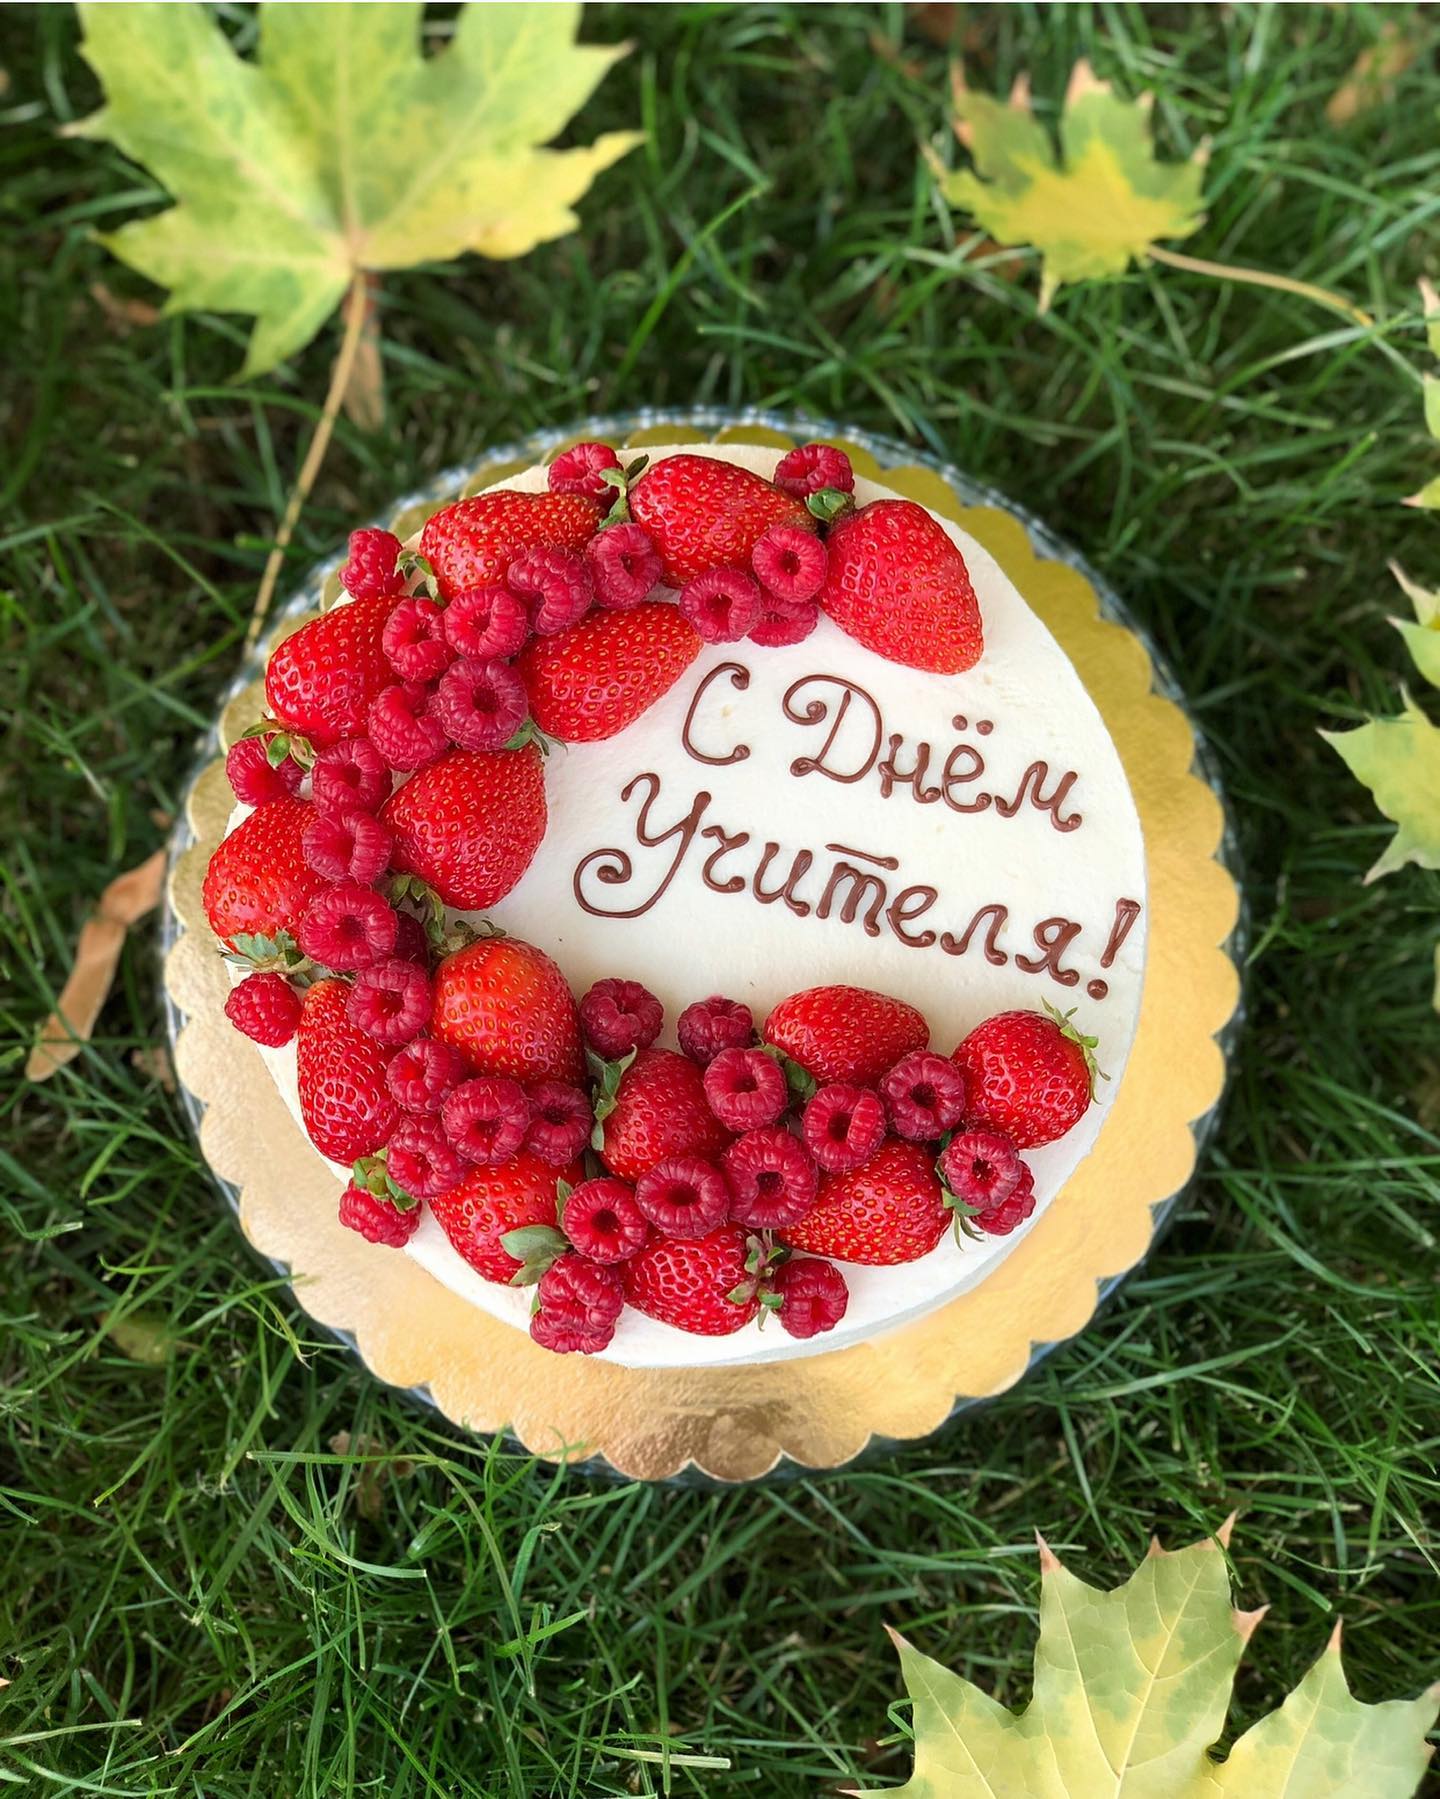 С Днём
Учителя!